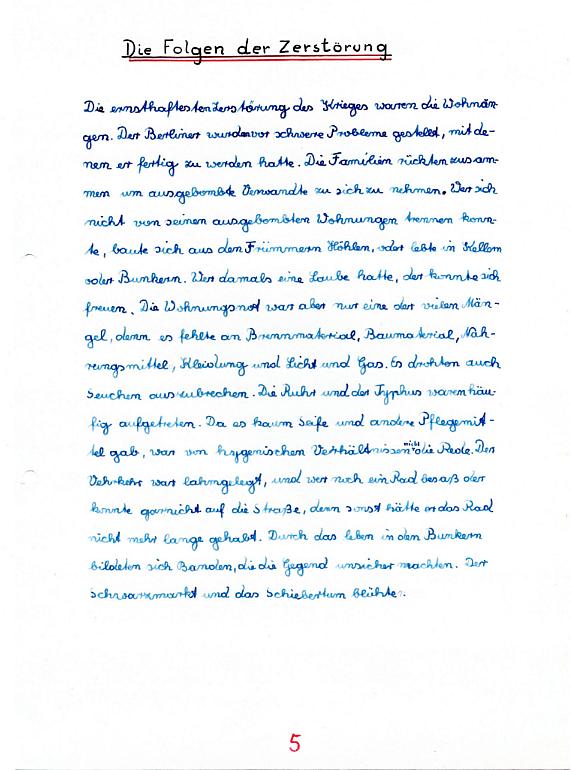 Die Folgen der Zerstörung
Die ernsthaftesten Zerstörung des Krieges waren die Wohnän-
gen. Der Berliner wurden vor schwere Probleme gestellt, mit de-
nen er fertig zu werden hatte. Die Familien rückten zusam-
men um ausgebombte Verwandte zu sich zu nehmen. Wer sich
nicht von seinen ausgebombten Wohnungen trennen konn-
te, baute sich aus den Trümmern Höhlen, oder lebte in Kellern
oder Bunkern. Wer damals eine Laube hatte, der konnte sich
freuen. Die Wohnungsnot war aber nur eine der vielen Män-
gel, denn es fehlte an Brennmaterial, Baumaterial, Nah-
rungsmittel, Kleidung und Licht und Gas. Es drohten auch
Seuchen auszubrechen. Die Ruhr und der Typhus waren häu-
fig aufgetreten. Da es kaum Seife und andere Pflegemit-
tel gab, war von hygenischen Verhältnissen nicht die Rede. Der
Verkehr war lahmgelegt, und wer noch ein Rad besaß der
konnte garnicht auf die Straße, denn sonst hätte er das Rad
nicht mehr lange gehabt. Durch das leben in den Bunkern
bildeten sich Banden, die die Gegend unsicher machten. Der
Schwarzmarkt und das Schiebertum blühte.
5